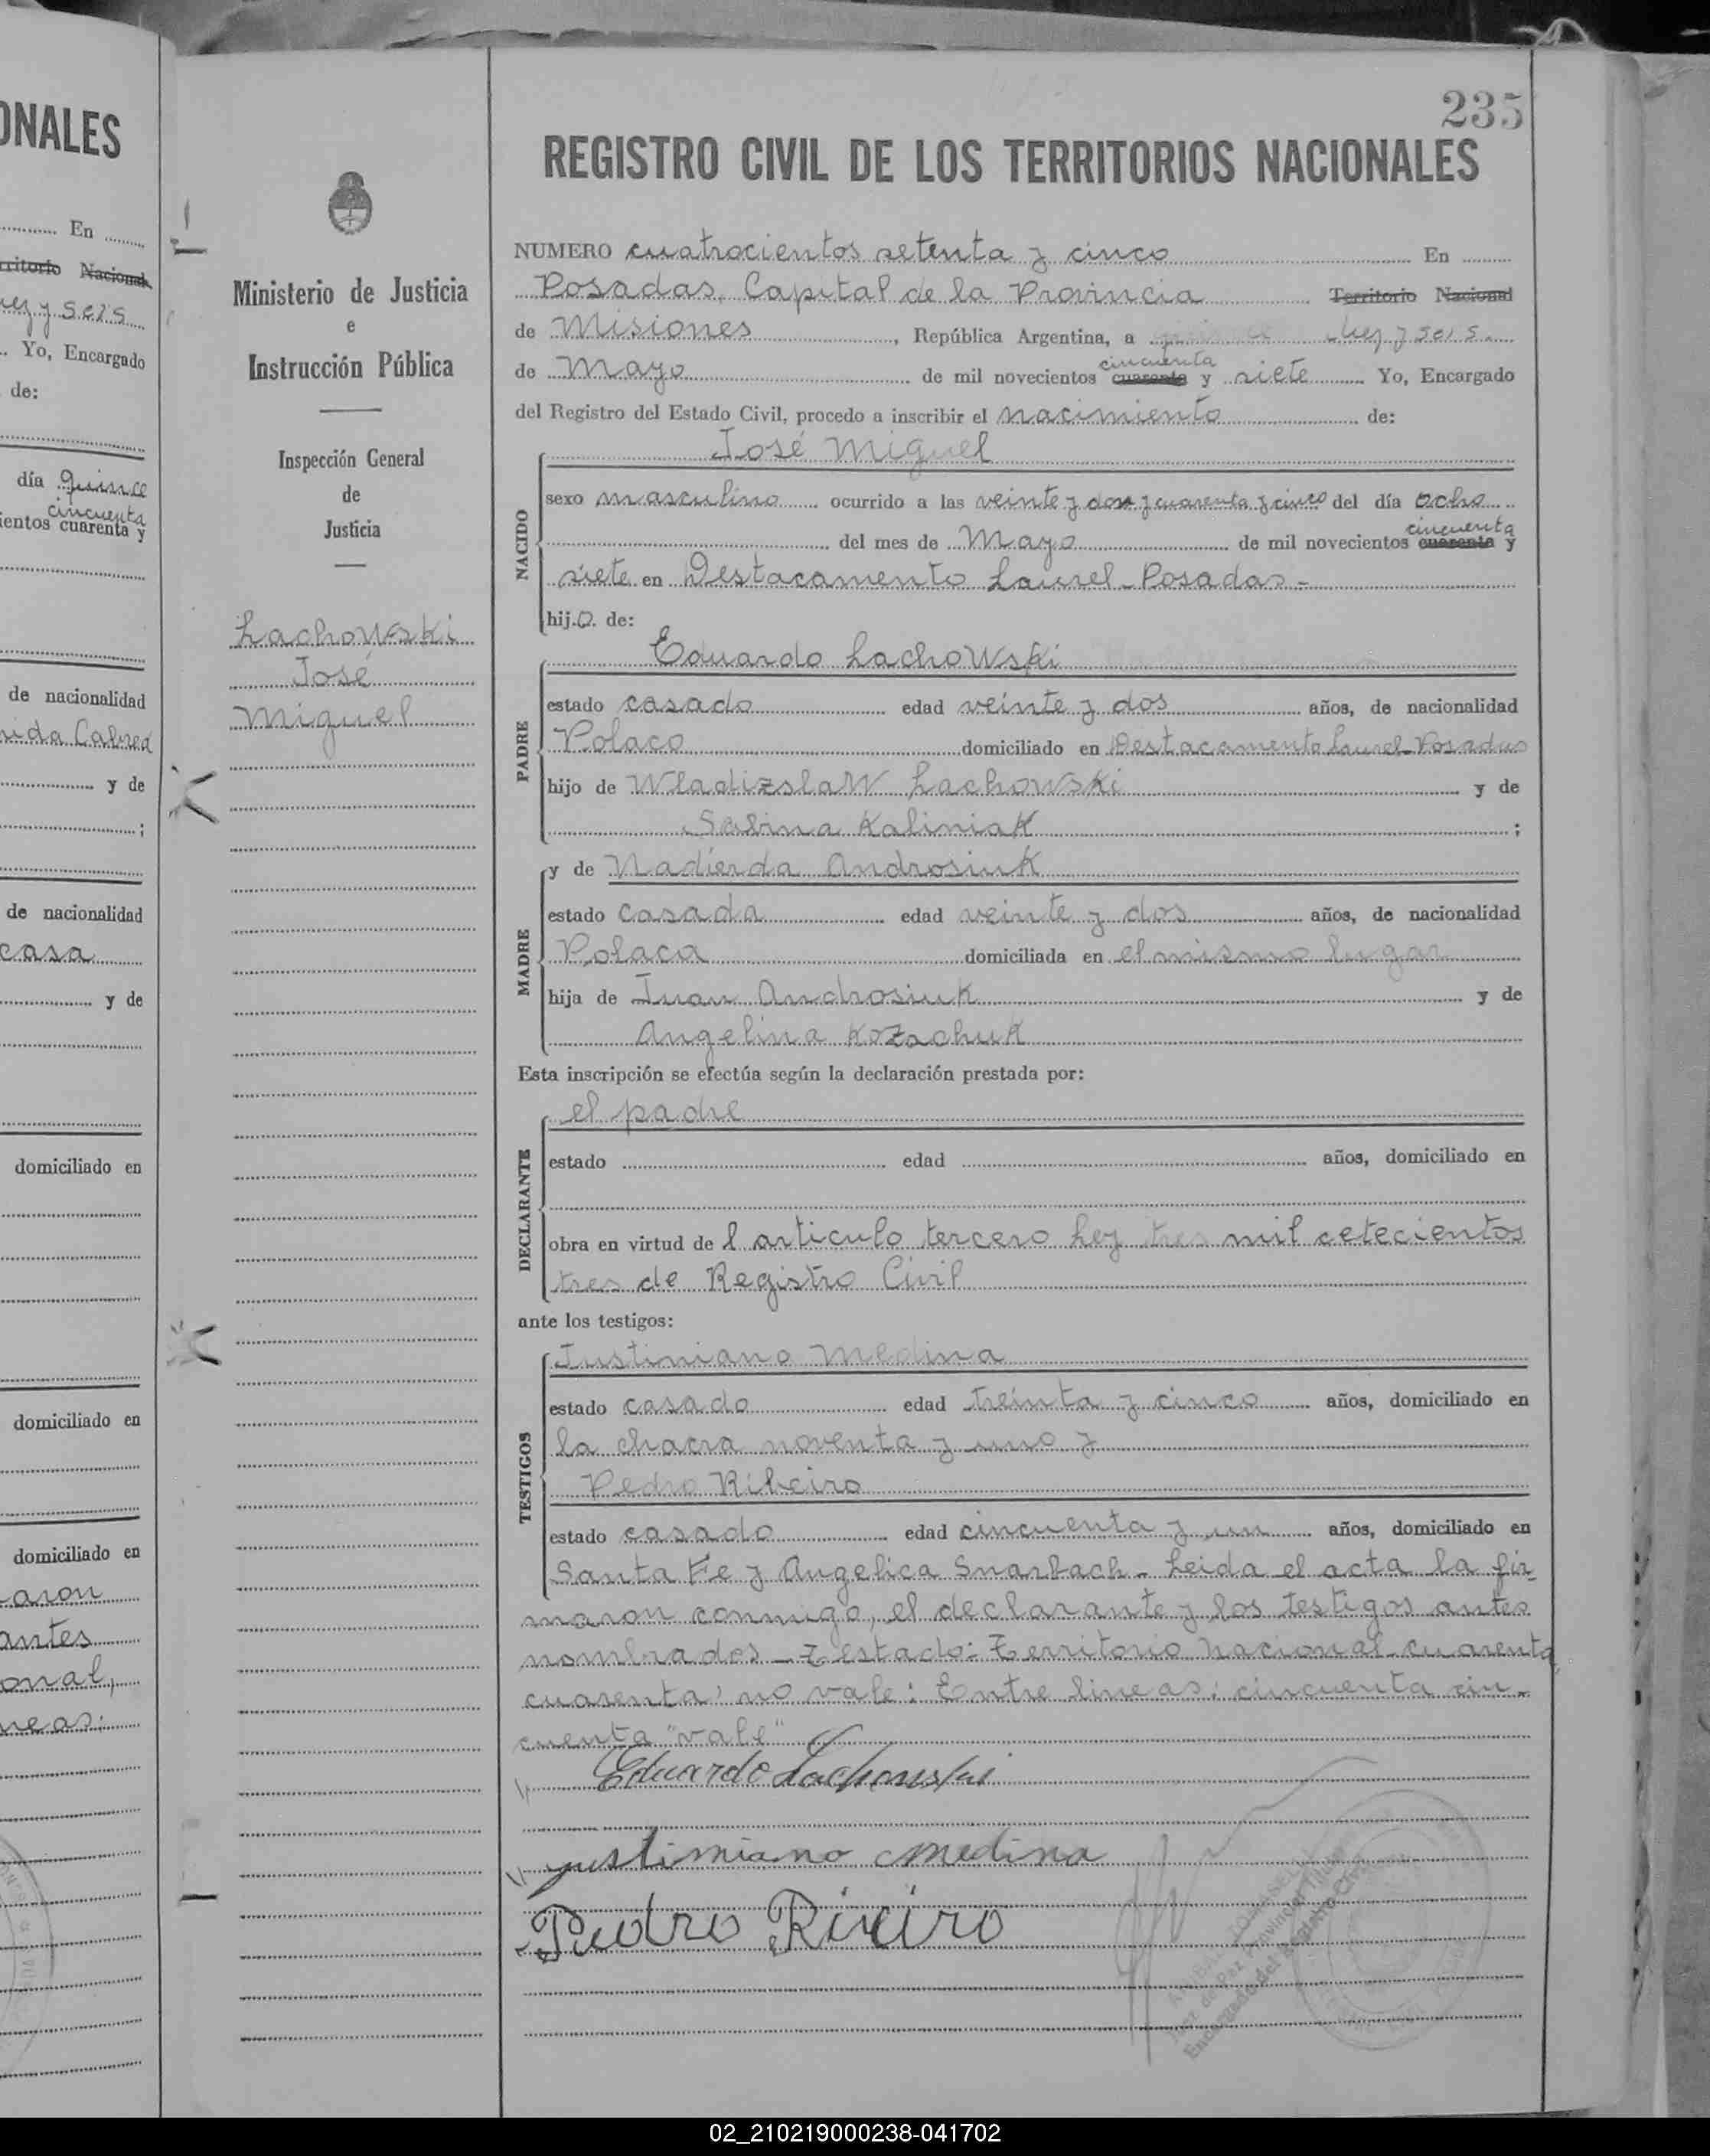 ONALES
En
rritorio Nacional
ez y seis
Yo, Encargado
de:
día quince
cincuenta
ientos cuarenta y
de nacionalidad
y de
;
de nacionalidad
casa
y de
domiciliado en
domiciliado en
domiciliado en
aron
antes
onal,
neas:
Ministerio de Justicia
e
Instrucción Pública
Inspección General
de
Justicia
Lachowski
José
Miguel
235
REGISTRO CIVIL DE LOS TERRITORIOS NACIONALES
NUMERO cuatrocientos setenta y cinco En
Posadas, Capital de la Provincia Territorio Nacional
de Misiones, República Argentina, a diez y seis.
cincuenta
de Mayo de mil novecientos cuarenta y siete Yo, Encargado
del Registro del Estado Civil, procedo a inscribir el nacimiento de:
José Miguel
NACIDO
sexo masculino ocurrido a las veinte y dos y cuarenta y cinco del día ocho
cincuenta
del mes de Mayo de mil novecientos cuarenta y
siete en Destacamento Laurel - Posadas -
hijo. de:
PADRE
Eduardo Lachowski
estado casado edad veinte y dos años, de nacionalidad
Polaco domiciliado en Destacamento Laurel - Posadas
hijo de Wladizslaw Lachowski y de
Sabina Kaliniak ;
MADRE
y de Nadierda Androsiuk
estado casada edad veinte y dos años, de nacionalidad
Polaca domiciliada en el mismo lugar
hija de Juan Androsiuk y de
Angelina Kozachuk
Esta inscripción se efectúa según la declaración prestada por:
DECLARANTE
el padre
estado edad años, domiciliado en
obra en virtud de l articulo tercero Ley tres mil cetecientos
tres de Registro Civil
ante los testigos:
TESTIGOS
Justiniano Medina
estado casado edad treinta y cinco años, domiciliado en
la chacra noventa y uno y
Pedro Ribeiro
estado casado edad cincuenta y un años, domiciliado en
Santa Fe y Angelica - Leida el acta la fir-
maron conmigo, el declarante y los testigos antes
nombrados - Testado: Territorio Nacional - cuarenta
cuarenta, no vale: Entre lineas: cincuenta cin-
cuenta "vale"
Eduardo Lachowski
justimiano medina
Puedro Riveiro
Juez de Paz Provincia Titular
Encargado del Registro Civil
02_210219000238-041702